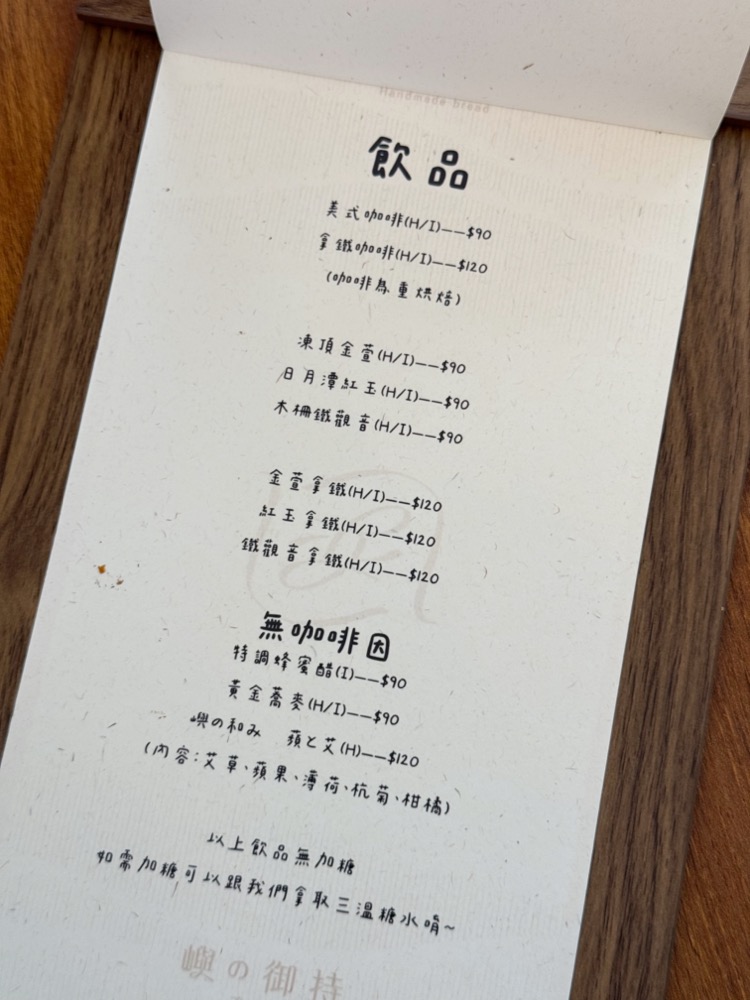 Handmade blend
飲品
美式咖啡(H/I)——$90
拿鐵咖啡(H/I)——$120
(咖啡為重烘焙)
凍頂金萱(H/I)——$90
日月潭紅玉(H/I)——$90
木柵鐵觀音(H/I)——$90
金萱拿鐵(H/I)——$120
紅玉拿鐵(H/I)——$120
鐵觀音拿鐵(H/I)——$120
無咖啡因
特調蜂蜜醋(I)——$90
黃金蕎麥(H/I)——$90
嶼の和み 蘋と艾(H)——$120
(內容:艾草、蘋果、薄荷、杭菊、柑橘)
以上飲品無加糖
如需加糖可以跟我們拿取三溫糖水唷~
嶼の御持